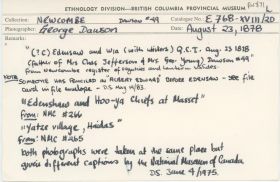 ETHNOLOGY DIVISION—BRITISH COLUMBIA PROVINCIAL MUSEUM
Collection NEWCOMBE Dawson #49 Catalogue No. E.768-XVIII/20
Photographer George Dawson Date August 23, 1878
REMARKS
"(?E) Edensaw and Wia (with sisters) Q.C.I. Aug. 23 1878
(father of Mrs Chas Jefferson & Mrs Geo Young) Dawson #49"
from Newcombe register of negatives and lantern slides.
NOTE: SOMEONE HAS PENCILED IN "ROBERT EDWARD" BEFORE EDENSAW - SEE FILE
CARD IN FILE ENVELOPE - D.S. MAY 19/83.
"Edenshaw and Hoo-ya Chiefs at Masset"
from: NMC #266
"Yatze village, Haidas"
from: NMC #265
both photographs were taken at the same place but
given different captions by the National Museum of Canada
D.S. June 4/1975.